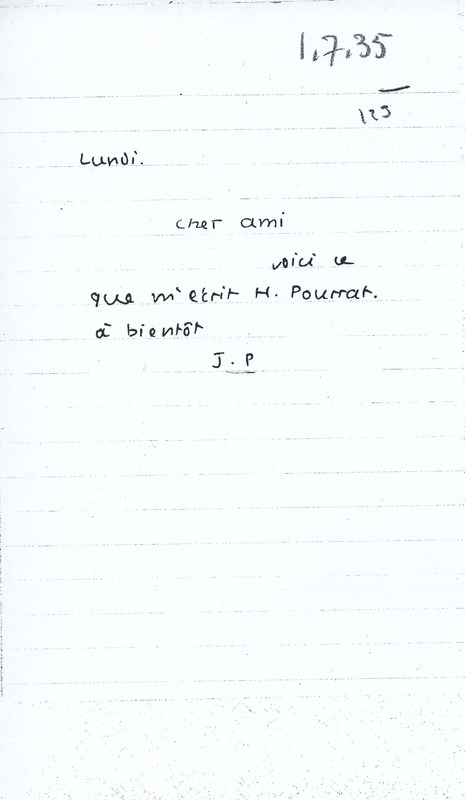 1.7.35
123
Lundi.
cher ami
voici ce
que m'écrit H. Pourrat.
à bientôt
J. P